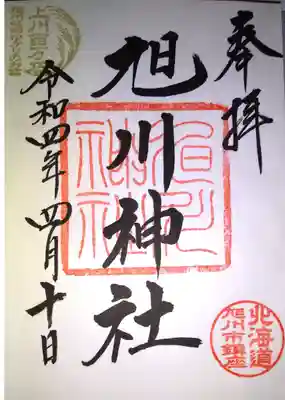 奉拝
旭川神社
令和四年四月十日
北海道
旭川市鎮座
上川百万石